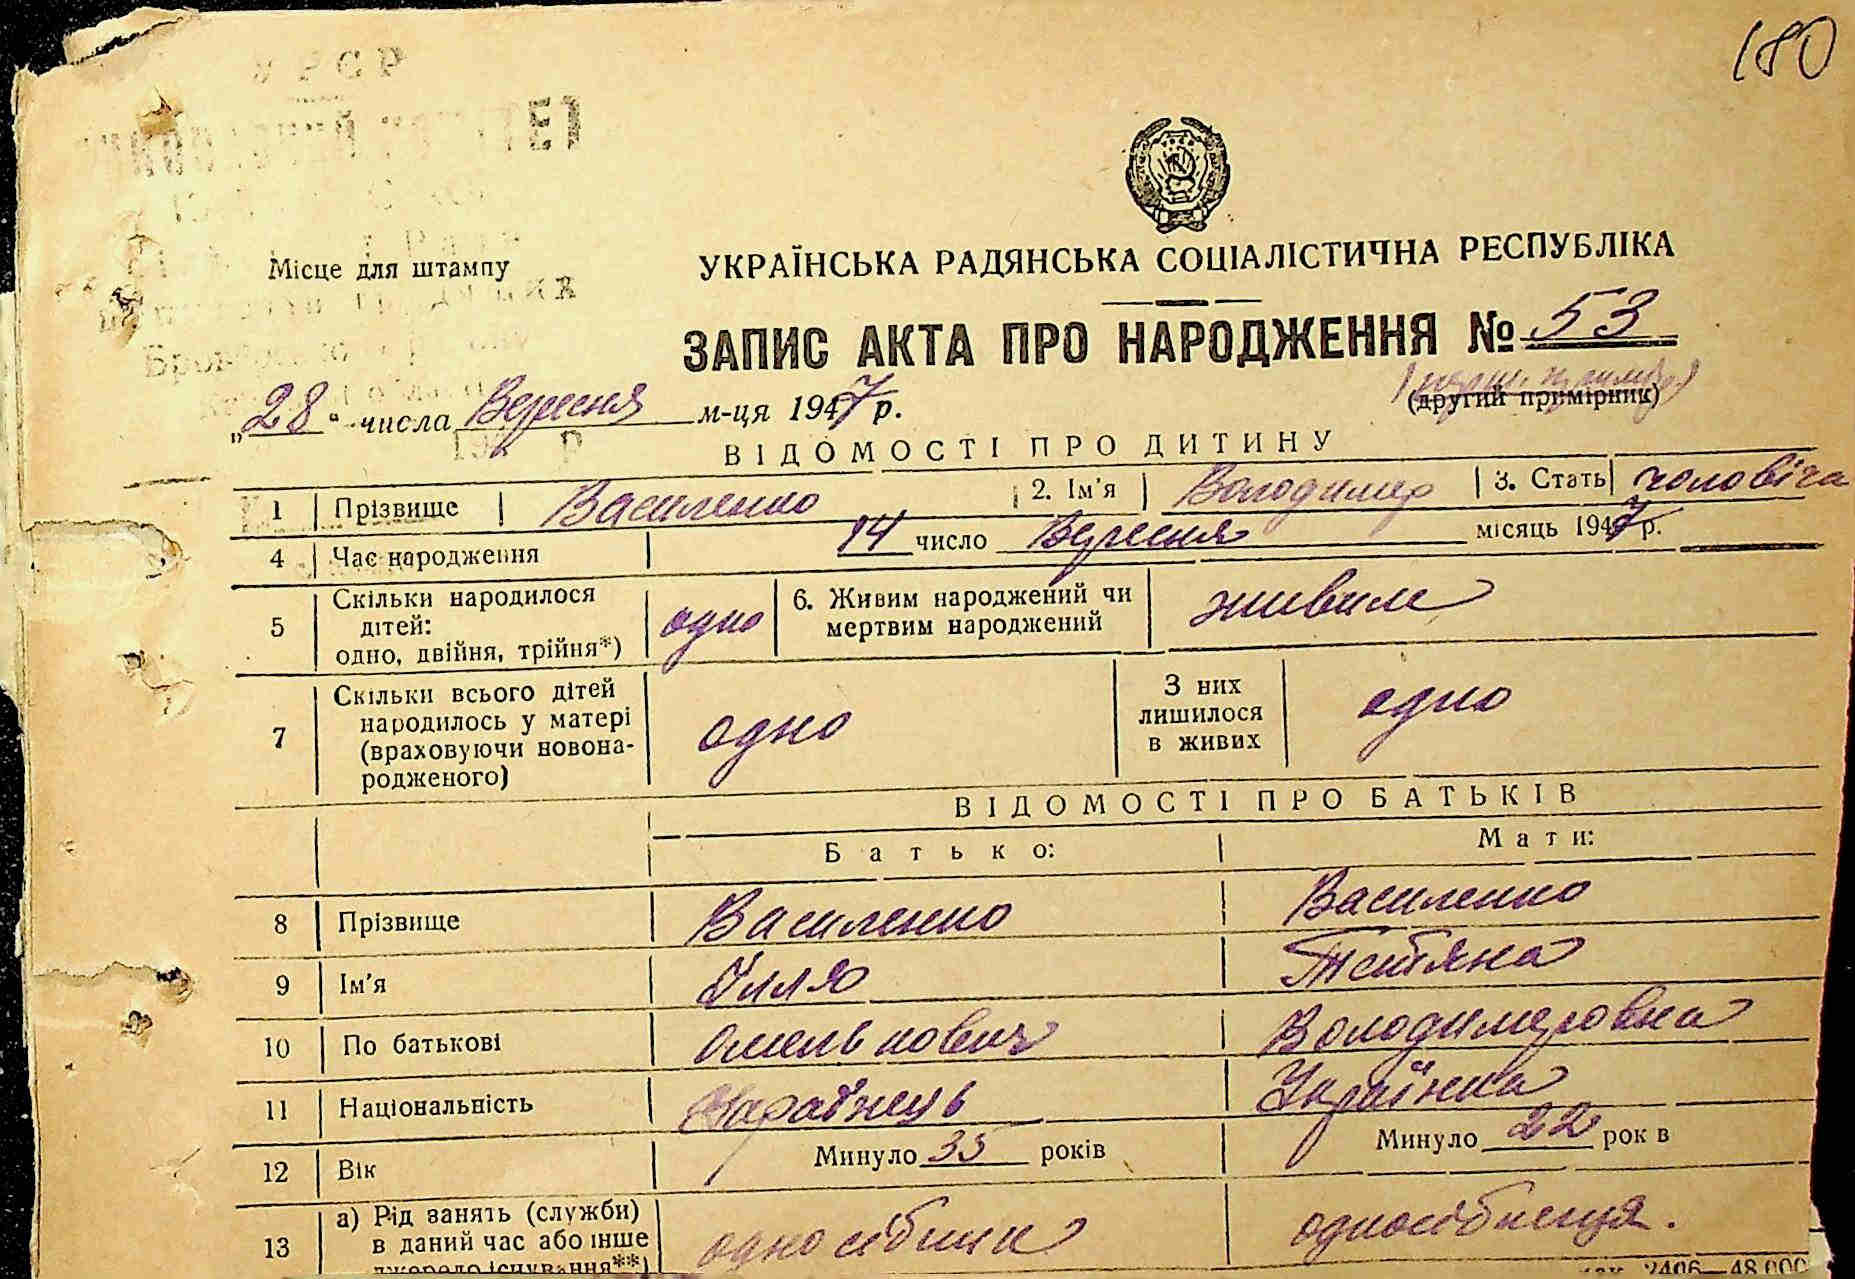 180
УРСР
Місце для штампу
УКРАЇНСЬКА РАДЯНСЬКА СОЦІАЛІСТИЧНА РЕСПУБЛІКА
ЗАПИС АКТА ПРО НАРОДЖЕННЯ № 53
„28“ числа Вересня м-ця 1947 р.
(другий примірник)
ВІДОМОСТІ ПРО ДИТИНУ
1 Прізвище Василенко 2. Ім'я Володимер 3. Стать чоловіча
4 Час народження 14 число Вересня місяць 1947 р.
5 Скільки народилося дітей: одно, двійня, трійня*) одно 6. Живим народжений чи мертвим народжений живим
7 Скільки всього дітей народилось у матері (враховуючи новона-родженого) одно З них лишилося в живих одно
ВІДОМОСТІ ПРО БАТЬКІВ
Батько: Мати:
8 Прізвище Василенко Василенко
9 Ім'я Ілля Тетяна
10 По батькові Омелькович Володимеровна
11 Національність Українець Українка
12 Вік Минуло 35 років Минуло 22 рок в
13 а) Рід занять (служби) в даний час або інше джерело існування**) односібник односібниця.
2406—48.000